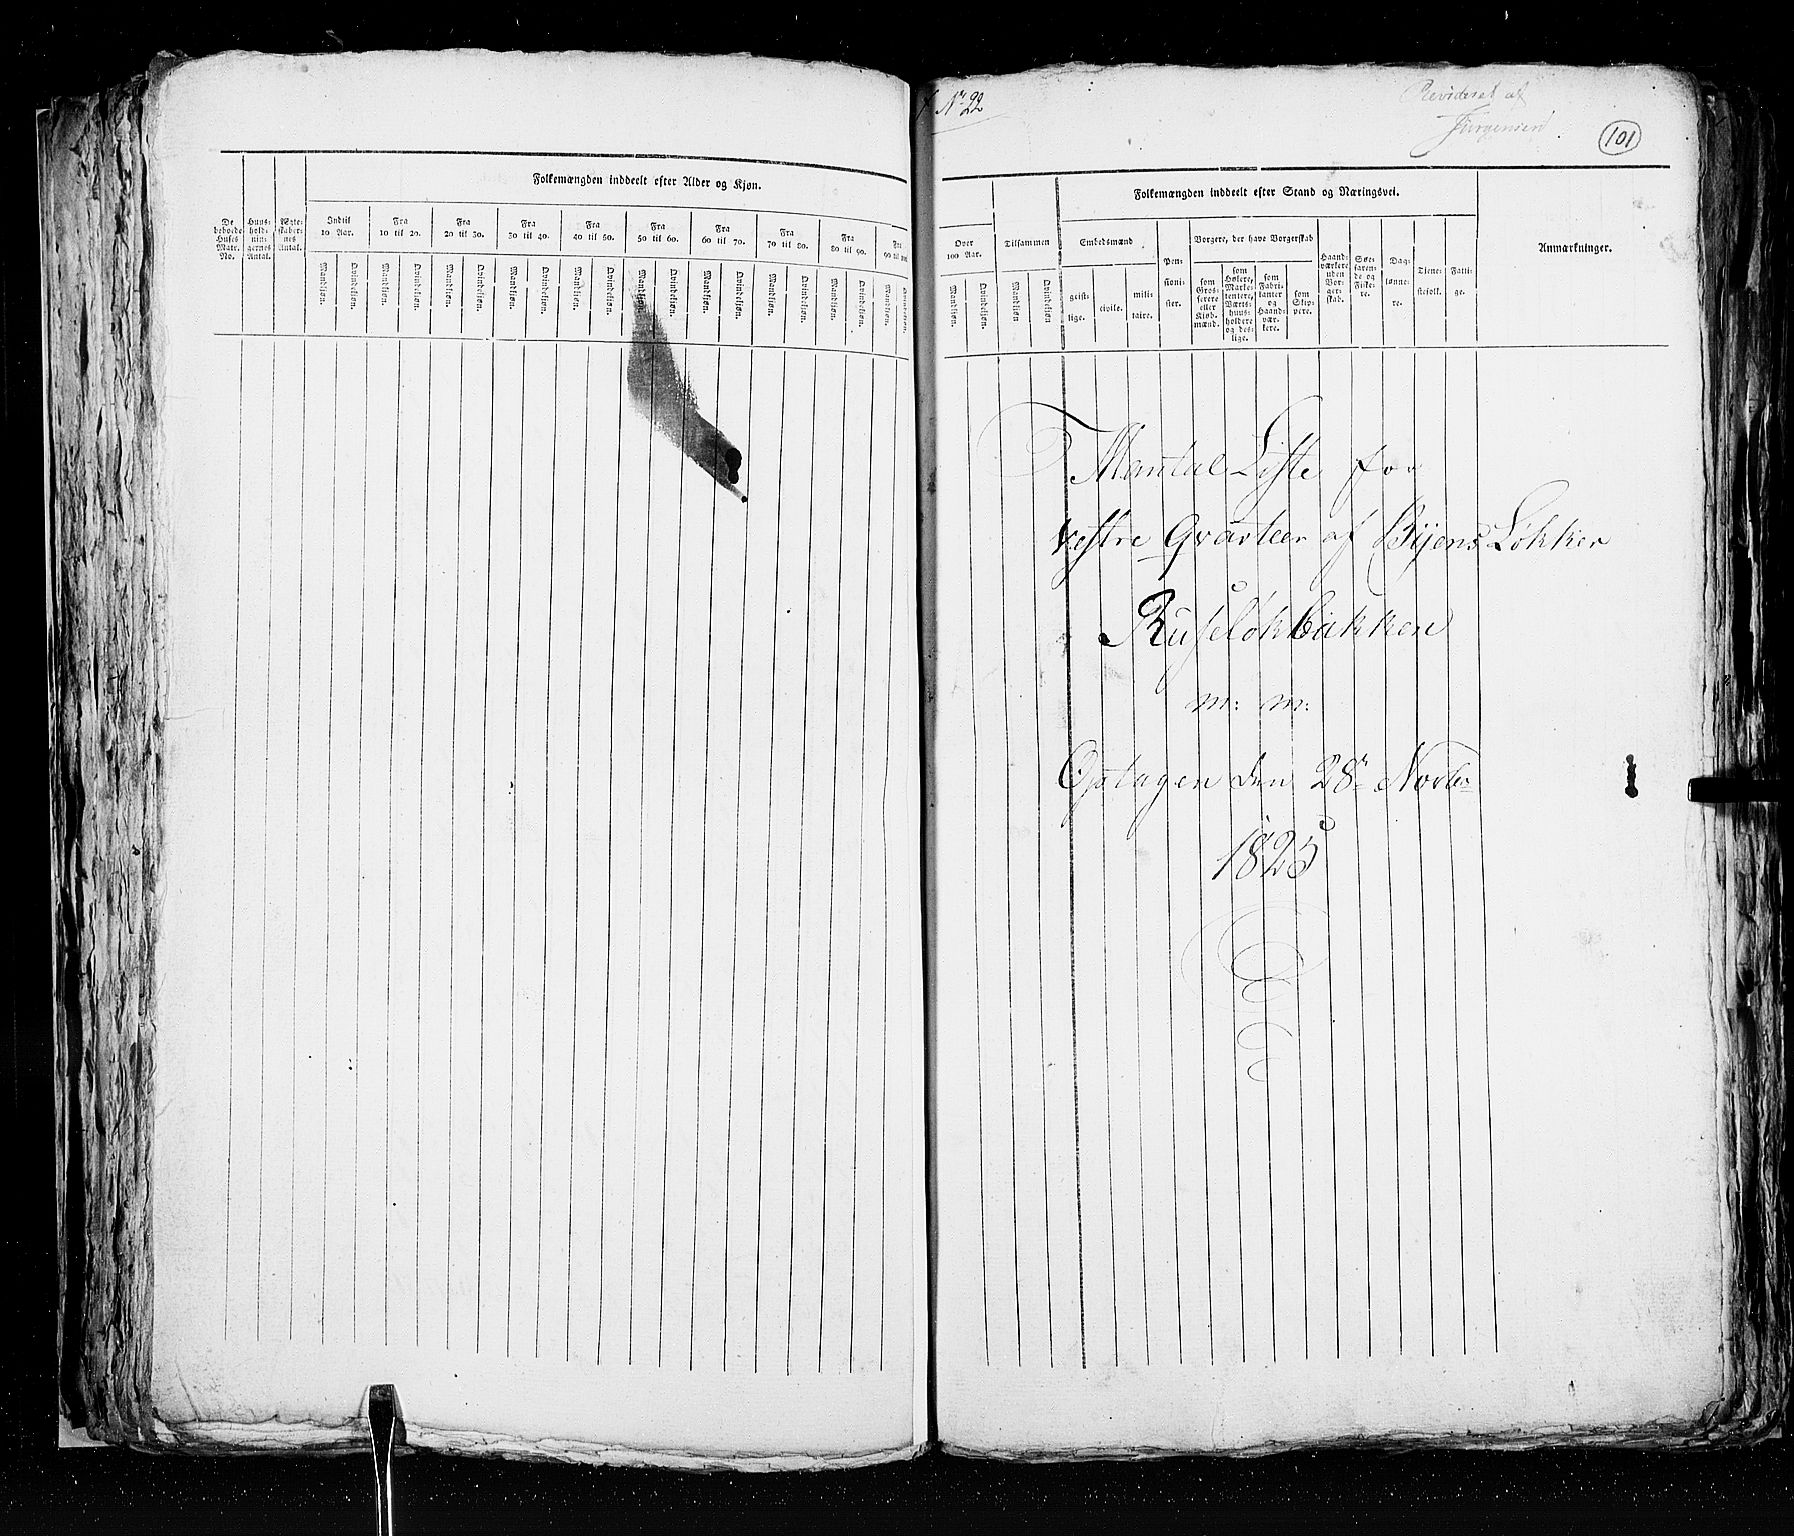 Folkemængden inddeelt efter Alder og Kjøn.
De beboede Huses Matr. No.
Huusholdningernes Antal.
Ægteskabernes Antal.
Indtil 10 Aar.
Fra 10 til 20.
Fra 20 til 30.
Fra 30 til 40.
Fra 40 til 50.
Fra 50 til 60.
Fra 60 til 70.
Fra 70 til 80.
Fra 80 til 90.
Fra 90 til 100.
Mandkjøn. Qvindekjøn. Mandkjøn. Qvindekjøn. Mandkjøn. Qvindekjøn. Mandkjøn. Qvindekjøn. Mandkjøn. Qvindekjøn. Mandkjøn. Qvindekjøn. Mandkjøn. Qvindekjøn. Mandkjøn. Qvindekjøn. Mandkjøn. Qvindekjøn. Mandkjøn. Qvindekjøn.
No 22
Revideret af
Jürgensen
101
Folkemængden inddeelt efter Stand og Næringsvei.
Over 100 Aar.
Tilsammen
Embedsmænd
Pensionister.
Borgere, der have Borgerskab
Haandværkere uden Borgerskab.
Søefarende og Fiskere.
Daglønnere.
Tienestefolk.
Fattige.
Anmærkninger.
Mandkjøn. Qvindekjøn. Mandkjøn Qvindekjøn
geistlige.
civile.
militaire.
som Grosserere eller Kiøbmænd.
som Høkere, Marketentere, Værtshuusholdere og deslige.
som Fabrikanter og Haandværkere.
som Skippere.
Mantal Liste for
Vestre Qvarteer af Byens Løkker
Ruseløkbakken
m: m:
Optagen den 28de Novbr
1825